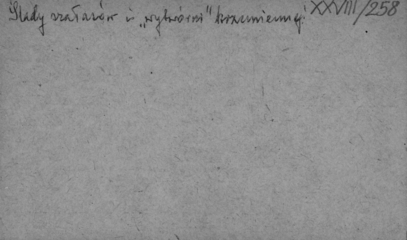 Ślady szałasów i „wytwórni” krzemiennej. XXVIII/258